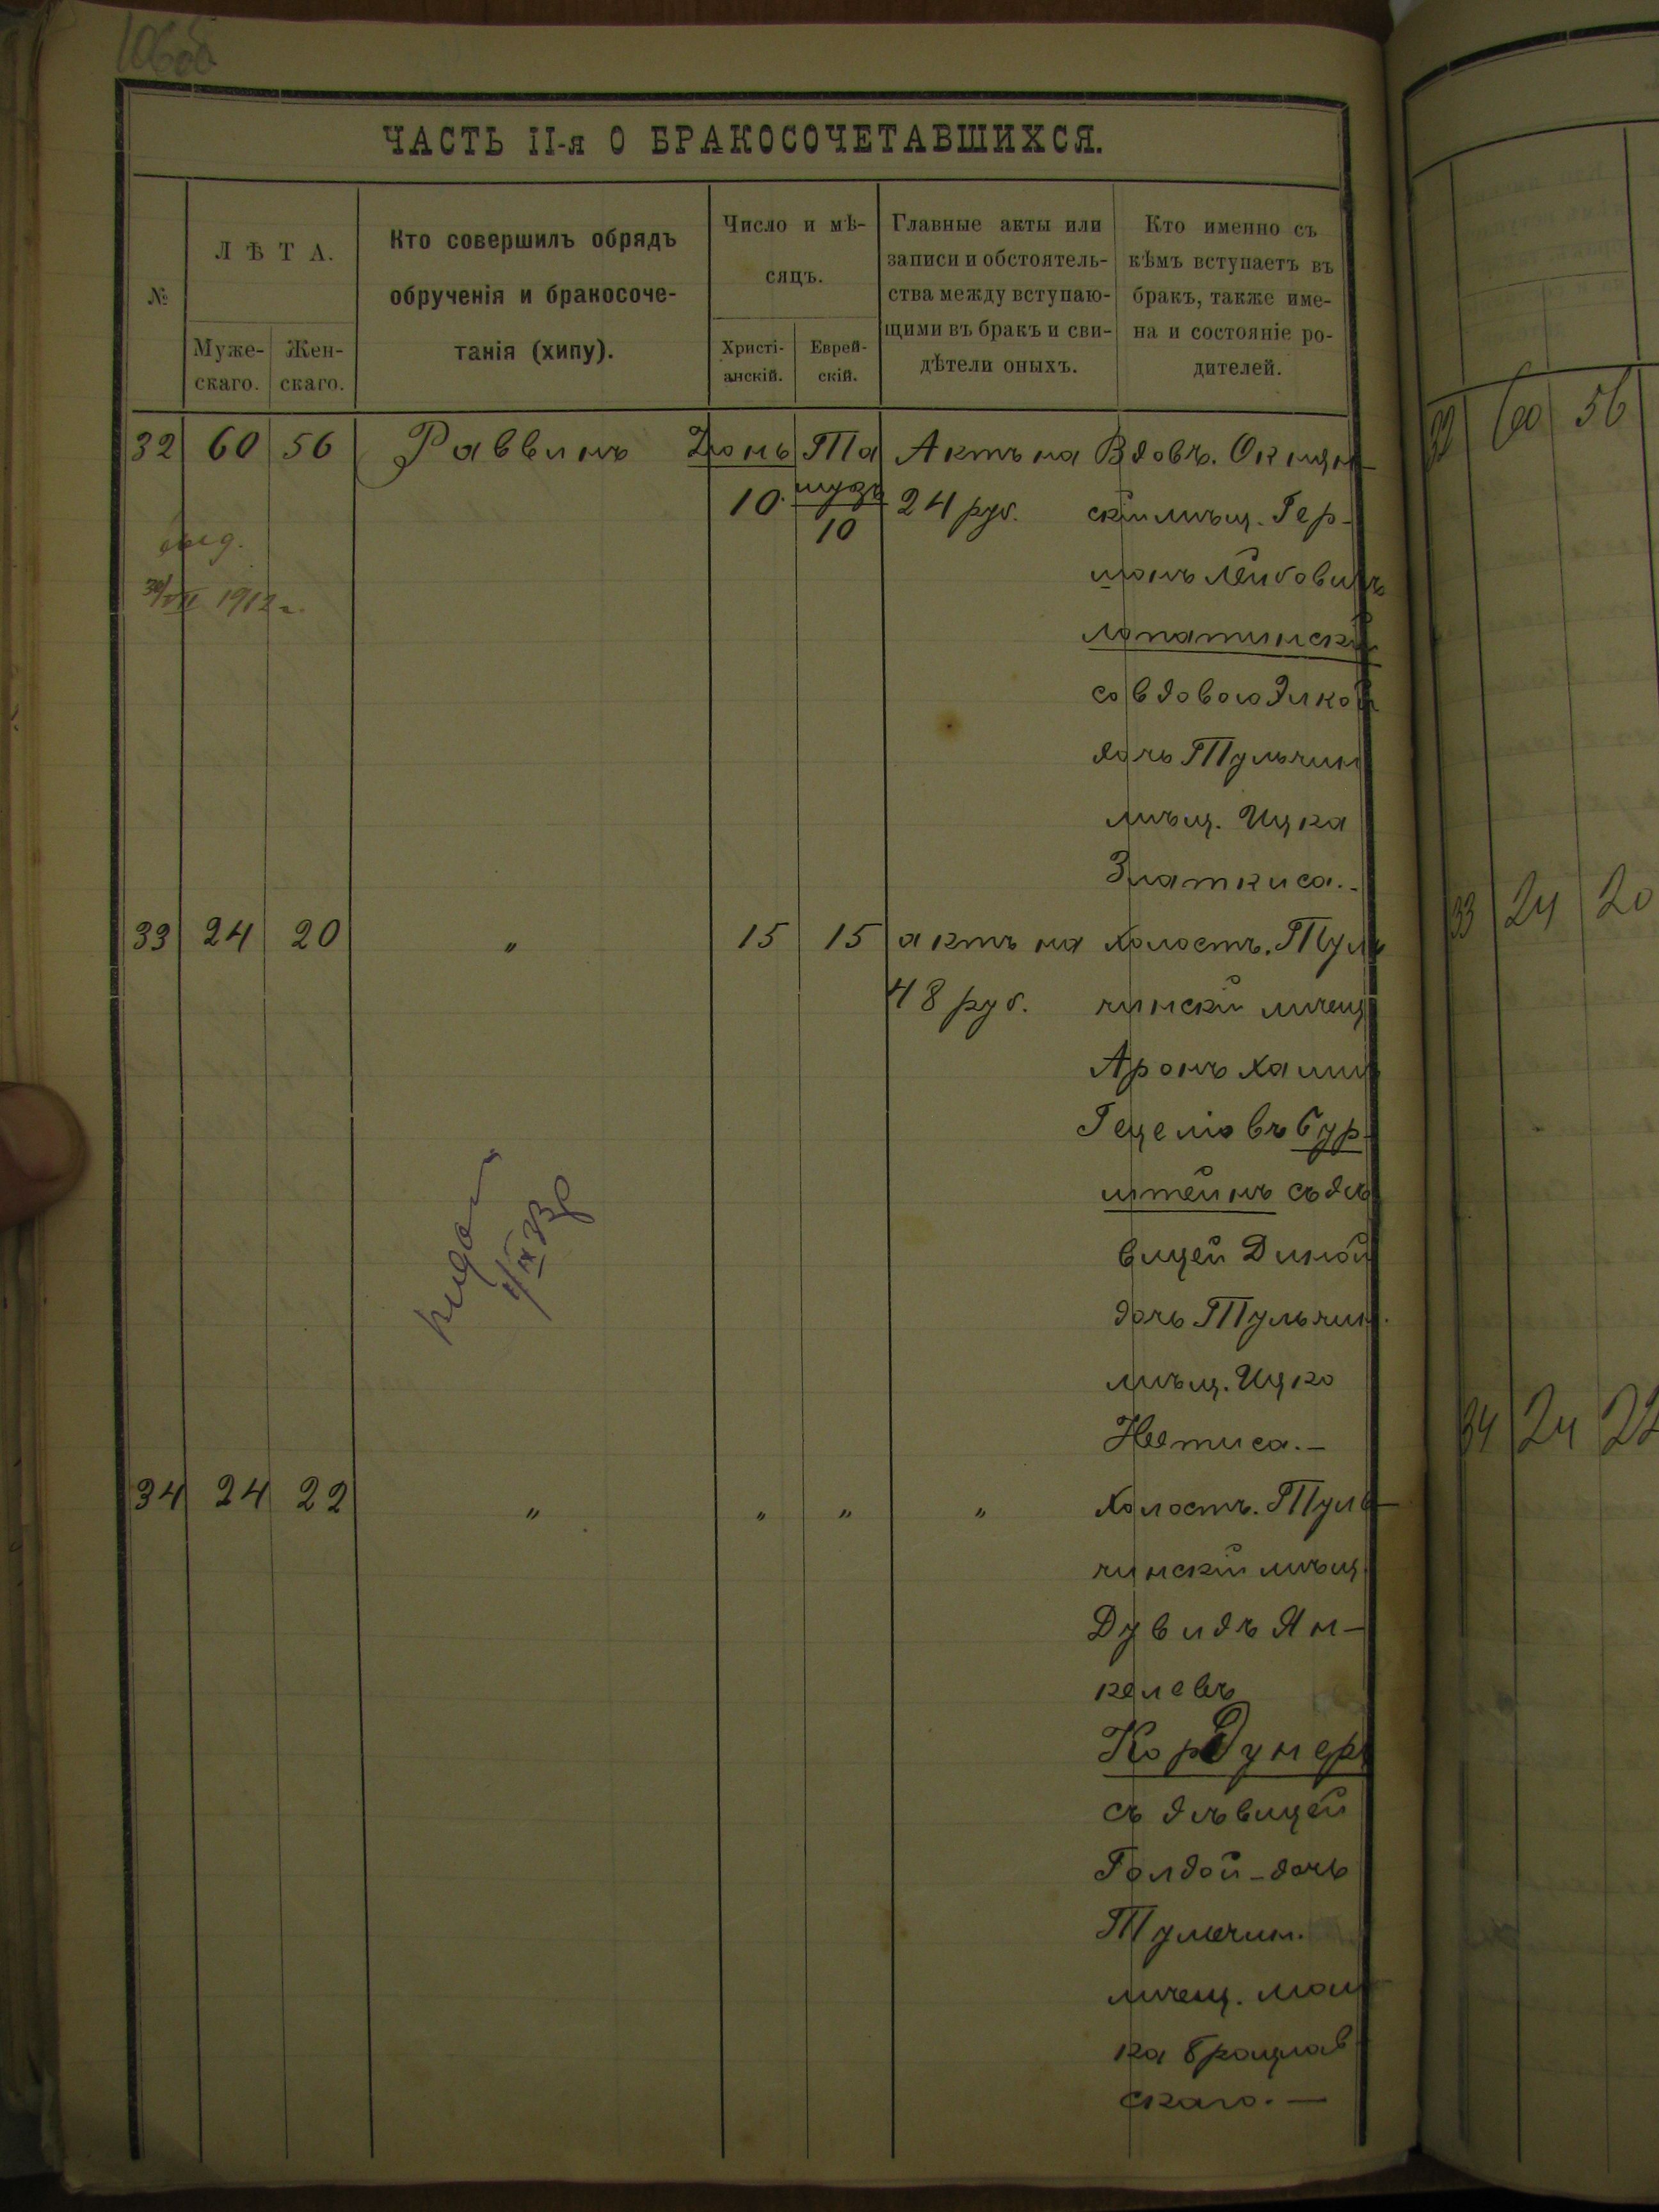 106об
ЧАСТЬ II-я О БРАКОСОЧЕТАВШИХСЯ.
№
ЛѢТА.
Муже-
скаго.
Жен-
скаго.
Кто совершилъ обрядъ
обрученія и бракосоче-
танія (хипу).
Число и мѣ-
сяцъ.
Христі-
анскій.
Еврей-
скій.
Главные акты или
записи и обстоятель-
ства между вступаю-
щими въ бракъ и сви-
дѣтели оныхъ.
Кто именно съ
кѣмъ вступаетъ въ
бракъ, также име-
на и состояніе ро-
дителей.
32 60 56 Раввинъ Іюнь Та Актъ на Вдовъ. Окнян-
10 музъ 10 24 руб. скій мѣщ. Гер-
выд. шонъ Лейбовичъ
30/VII 1912 г. Лопатинскій
со вдовою Элкой
дочь Тульчин
мѣщ. Ицка
Златкиса.-
33 24 20 " 15 15 актъ на холостъ. Туль
48 руб. чинскій мѣщ
Аронъ Хаимъ
Гецелювъ Бур-
штейнъ съ дѣ
вицей Диной
дочь Тульчин.
мѣщ. Ицко
34 24 22 " " " " Холостъ. Туль-
чинскій мѣщ
Дувидъ Ян-
келевъ
Кордунеръ
съ дѣвицей
Голдой - дочь
Тульчин.
мѣщ. Мош
ка Брацлав
скаго. -
32 60 56
33 24 20
34 24 22